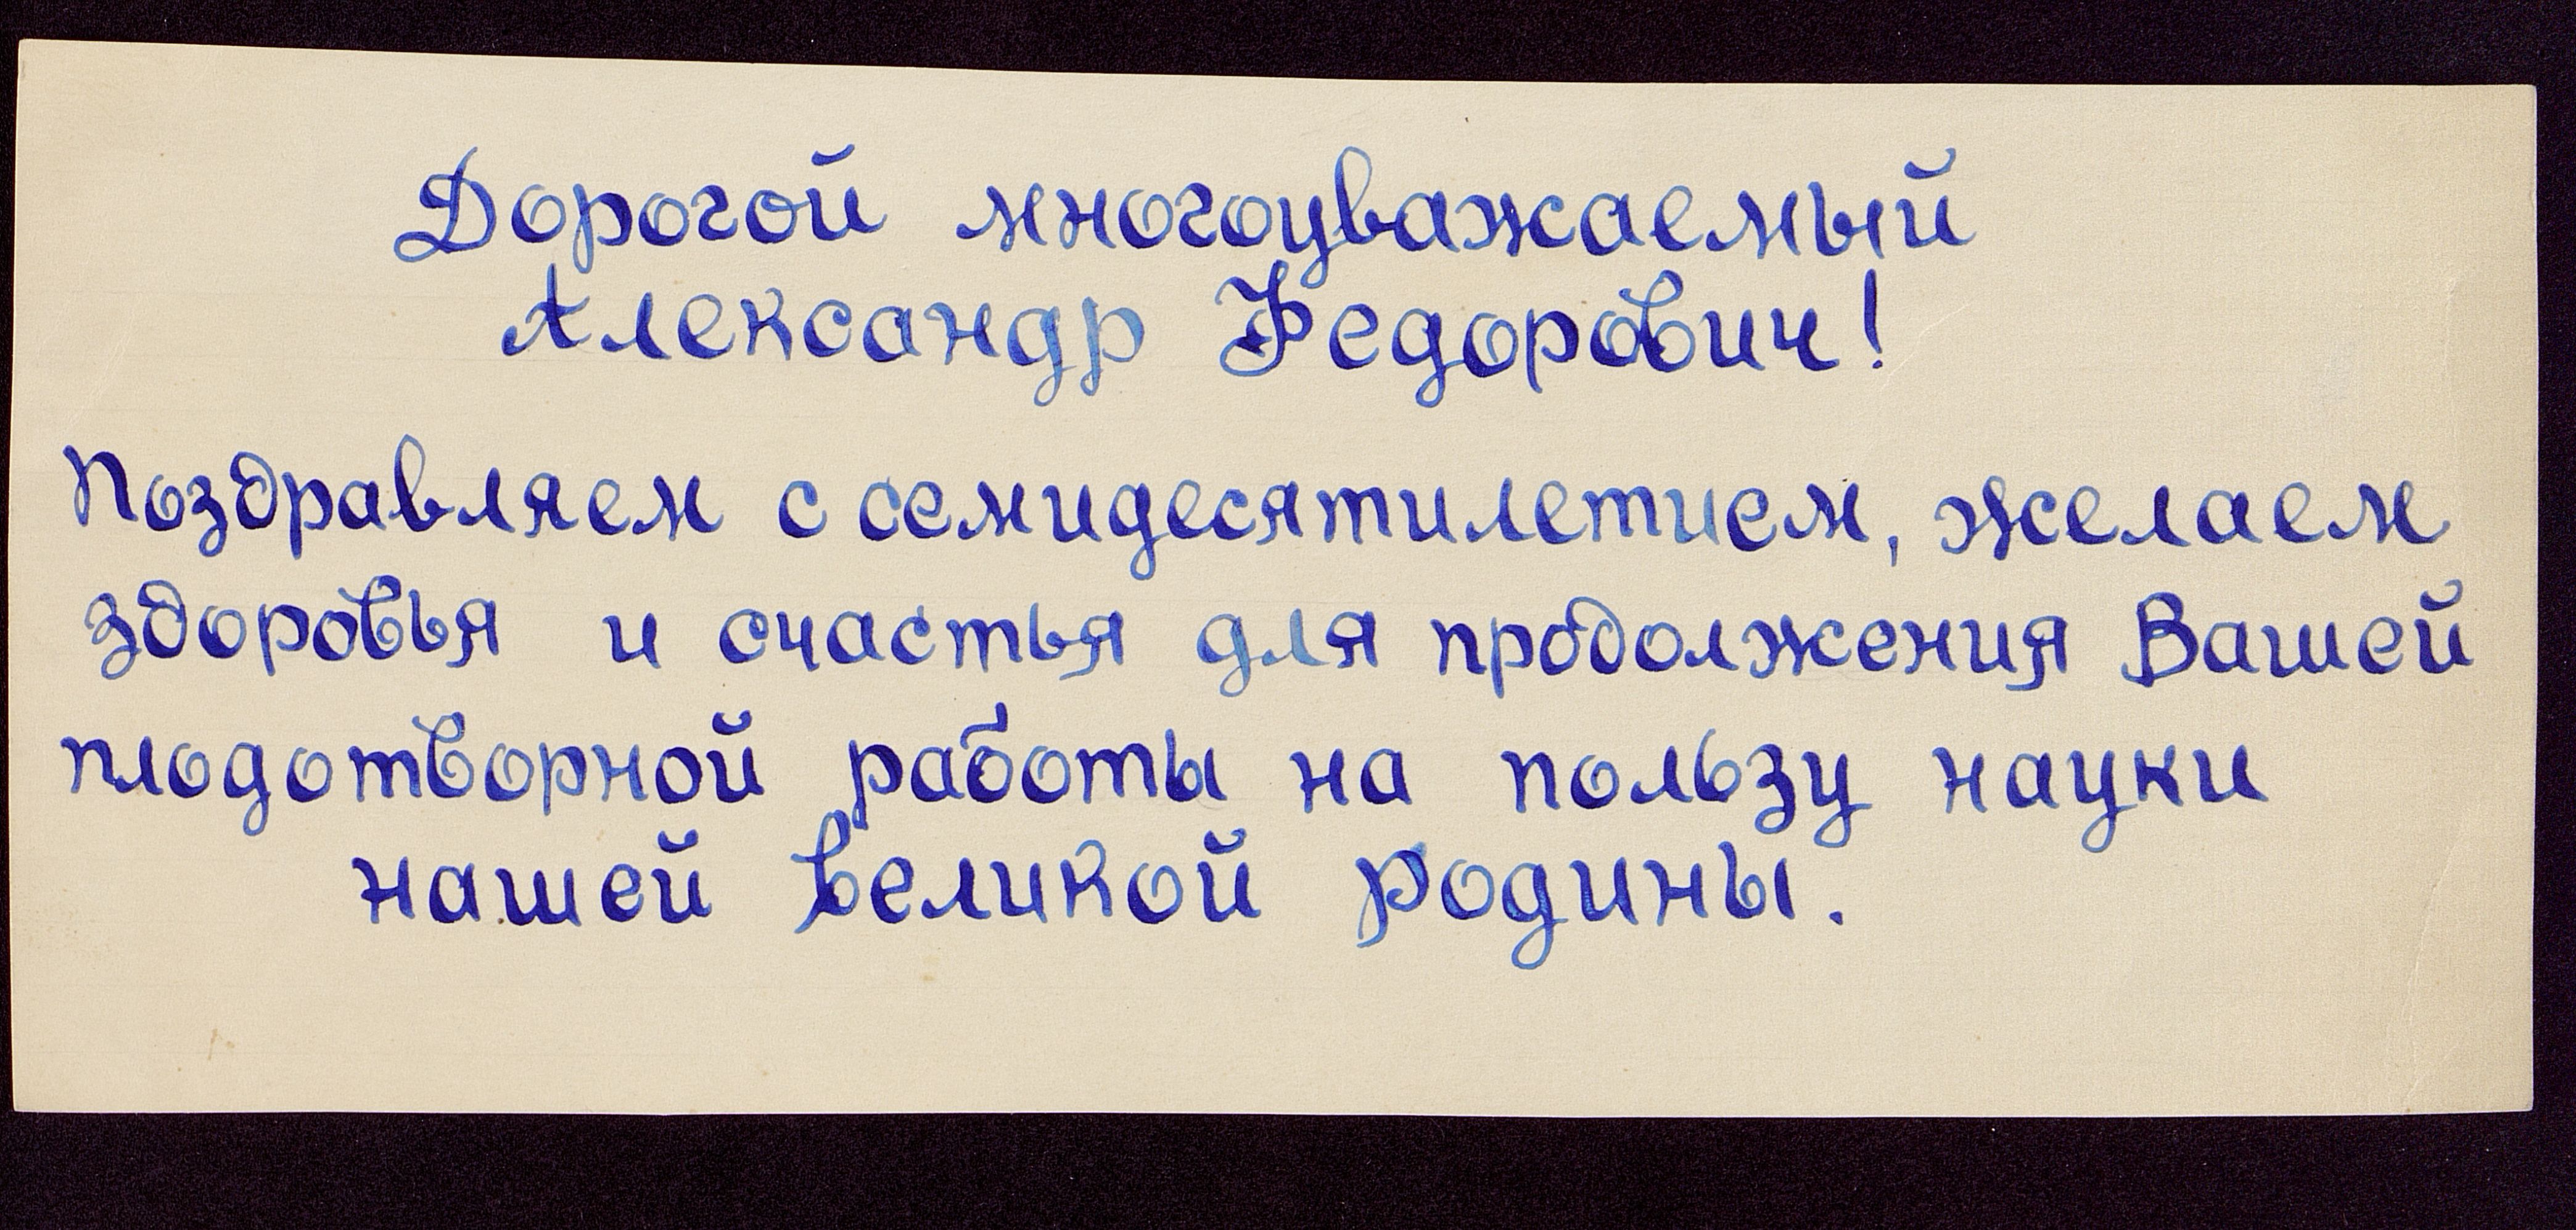 Дорогой многоуважаемый
Александр Федорович!
Поздравляем с семидесятилетием, желаем
здоровья и счастья для продолжения Вашей
плодотворной работы на пользу науки
нашей великой родины.